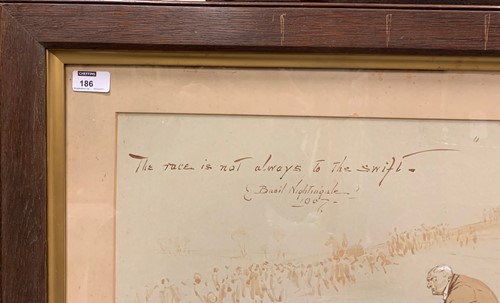 186
The race is not always to the swift.
Basil Nightingale